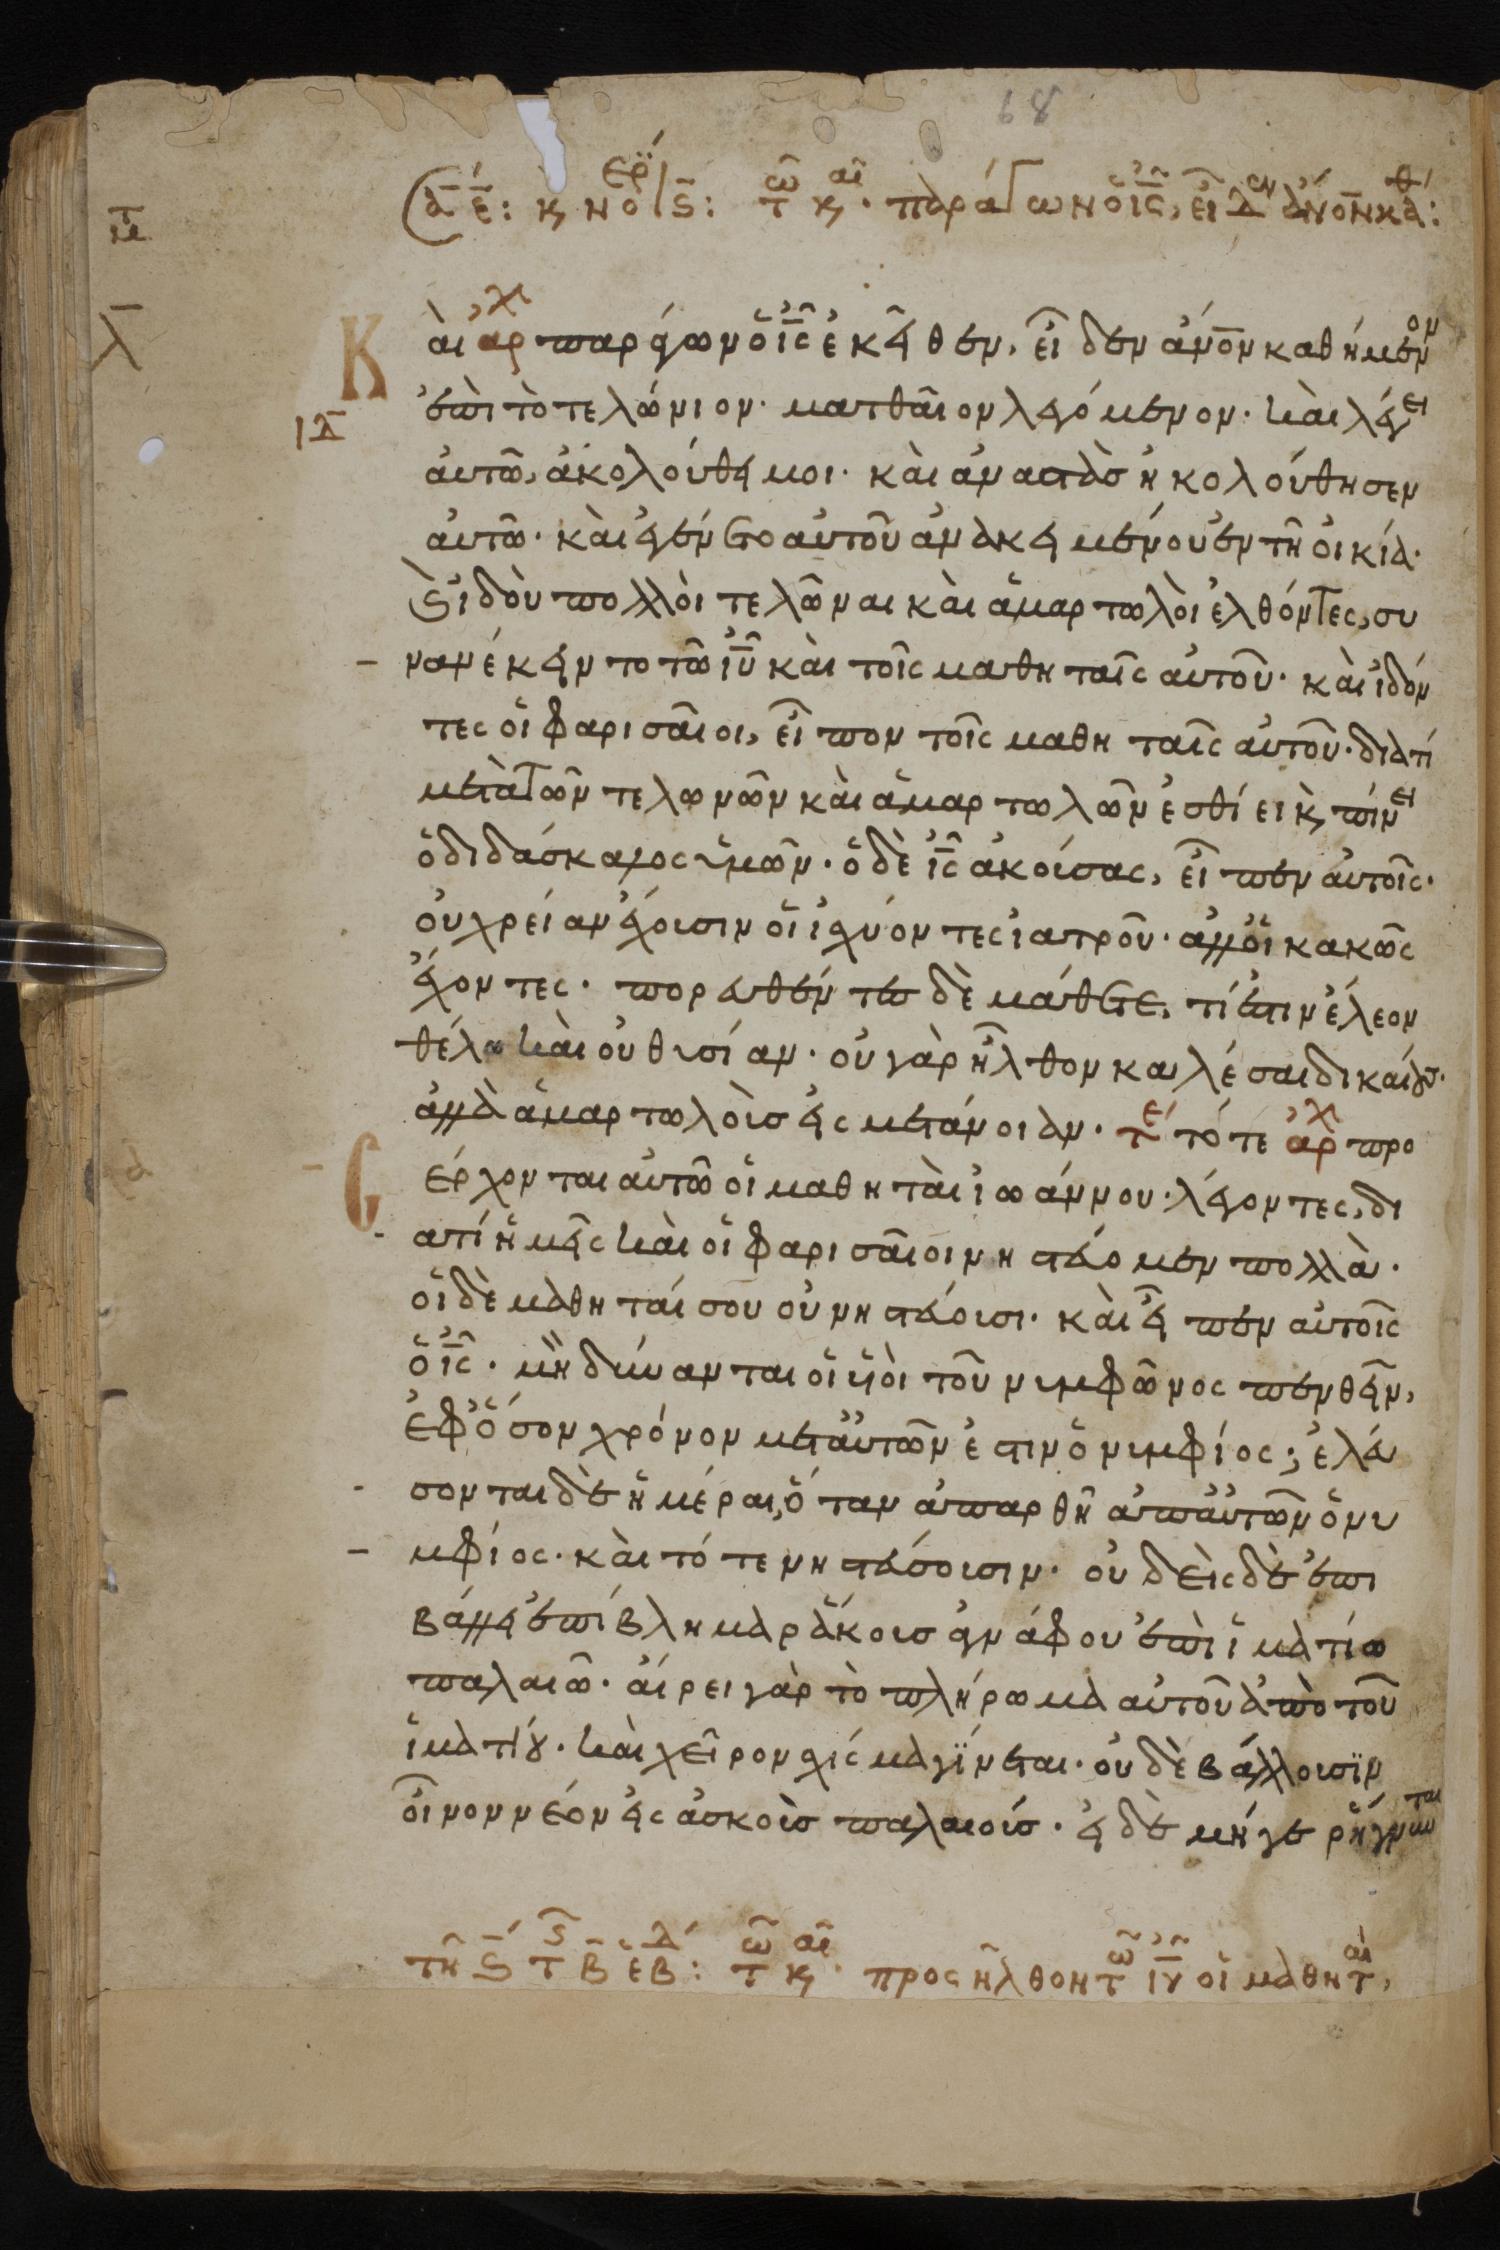 τω κ, αι· παράγων ὁ ι̅ς̅, εἶδεν ἄν̅ον καθ:
Καὶ αρχ παράγων ὁ ι̅ς̅ ἐκεῖθεν, εἶδεν ἄν̅ον καθήμενον
ΙΔ̅
ἐπὶ τὸ τελώνιον· ματθαῖον λεγόμενον· καὶ λέγει
αὐτῶ, ἀκολούθει μοι· καὶ ἀναστὰσ ἠκολούθησεν
αὐτῶ· καὶ ἐγένετο αὐτοῦ ἀνακειμένου ἐν τῆ οἰκία·
Ϗ ἰδοὺ πολλοὶ τελῶναι καὶ ἁμαρτωλοὶ ἐλθόντες, συ
νανέκειντο τῶ ι̅υ̅ καὶ τοῖς μαθηταῖς αὐτοῦ· καὶ ἰδόν
τες οἱ φαρισαῖοι, εἶπον τοῖς μαθηταῖς αὐτοῦ· διατί
μετὰ τῶν τελωνῶν καὶ ἁμαρτωλῶν ἐσθίει ϗ πίνει
ὁ διδάσκαλος ὑμῶν· ὁ δὲ ι̅ς̅ ἀκούσας, εἶπεν αὐτοῖς·
οὐ χρείαν ἔχουσιν οἱ ἰσχύοντες ἰατροῦ· ἀλλ' οἱ κακῶς
ἔχοντες· πορευθέντεσ δὲ μάθετε, τί ἐστιν ἔλεον
θέλω καὶ οὐ θυσίαν· οὐ γὰρ ἦλθον καλέσαι δικαίουσ·
ἀλλὰ ἁμαρτωλοὺσ εἰς μετάνοιαν· τε τότε αρχ προ
σέρχονται αὐτῶ οἱ μαθηταὶ ἰωάννου· λέγοντες, δι
ατί ἡμεῖς καὶ οἱ φαρισαῖοι νηστεύομεν πολλά·
οἱ δὲ μαθηταί σου οὐ νηστεύουσι· καὶ εἶπεν αὐτοῖς
ὁ ι̅ς̅· μὴ δύνανται οἱ υἱοὶ τοῦ νυμφῶνος πενθεῖν,
ἐφ' ὅσον χρόνον μετ' αὐτῶν ἐστιν ὁ νυμφίος; ἐλεύ
σονται δὲ ἡμέραι, ὅταν ἀπαρθῆ ἀπ' αὐτῶν ὁ νυ
μφίος· καὶ τότε νηστεύσουσιν· οὐδεὶς δὲ ἐπι
βάλλει ἐπίβλημα ῥάκουσ ἀγνάφου ἐπὶ ἱματίω
παλαιῶ· αἴρει γὰρ τὸ πλήρωμα αὐτοῦ ἀπὸ τοῦ
ἱματίου· καὶ χεῖρον σχίσμα γίνεται· οὐδὲ βάλλουσϊν
οἶνον νέον εἰς ἀσκοὺσ παλαιούσ· εἰ δὲ μήγε ῥήγνυνται
τῆ Ϛ̅ τ Ϛ β̅ ε̅β: τω κ, αι· προς ἦλθον τῶ ι̅υ̅ οἱ μαθηται,